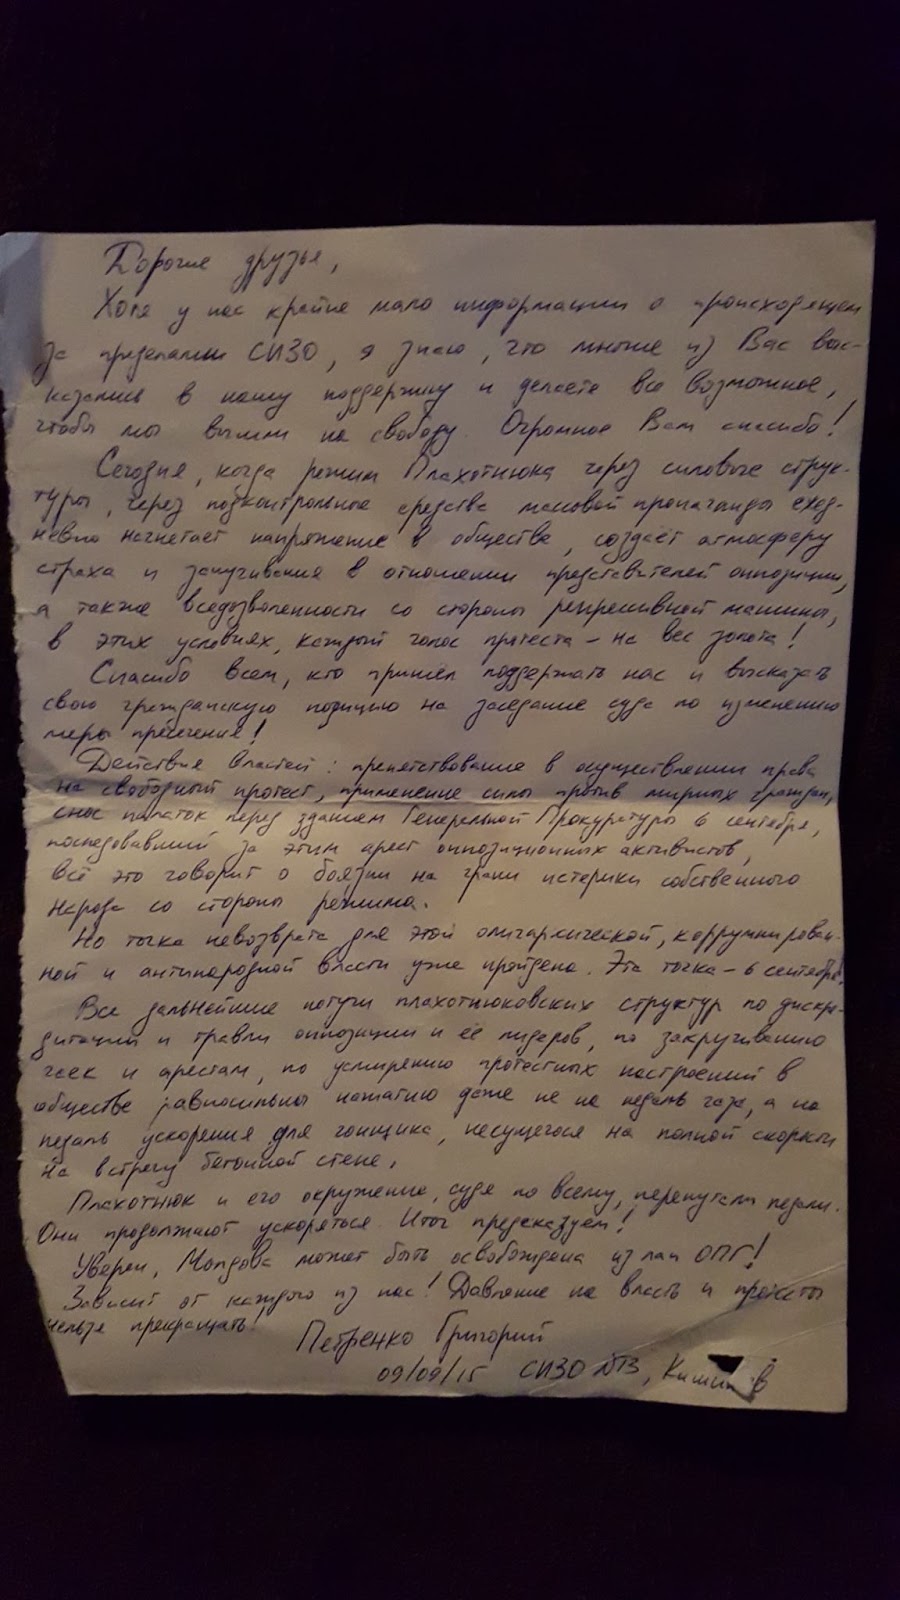 Дорогие друзья,
Хотя у нас крайне мало информации о происходящем
за пределами СИЗО, я знаю, что многие из Вас выс-
казались в нашу поддержку и делаете все возможное,
чтобы мы вышли на свободу. Огромное Вам спасибо!
Сегодня, когда режим Плахотнюка через силовые струк-
туры, через подконтрольные средства массовой пропаганды ежед-
невно нагнетает напряжение в обществе, создаёт атмосферу
страха и запугивания в отношении представителей оппозиции,
а также вседозволенности со стороны репрессивной машины,
в этих условиях, каждый голос протеста – на вес золота!
Спасибо всем, кто пришёл поддержать нас и высказать
свою гражданскую позицию на заседание суда по изменению
меры пресечения!
Действия властей: препятствование в осуществлении права
на свободный протест, применение силы против мирных граждан,
снос палаток перед зданием Генеральной Прокуратуры 6 сентября,
последовавший за этим арест оппозиционных активистов,
всё это говорит о боязни на грани истерики собственного
народа со стороны режима.
Но точка невозврата для этой олигархической, коррумпирован-
ной и антинародной власти уже пройдена. Эта точка – 6 сентября!
Все дальнейшие потуги плахотнюковских структур по дискре-
дитации и травли оппозиции и её лидеров, по закручиванию
гаек и арестам, по усмирению протестных настроений в
обществе равносильны нажатию даже не на педаль газа, а на
педаль ускорения для гонщика, несущегося на полной скорости
на встречу бетонной стене.
Плахотнюк и его окружение, судя по всему, перепутали педали.
Они продолжают ускоряться. Итог предсказуем!
Уверен, Молдова может быть освобождена из лап ОПГ!
Зависит от каждого из нас! Давление на власть и протесты
нельзя прекращать!
Петренко Григорий
09/09/15 СИЗО №13,